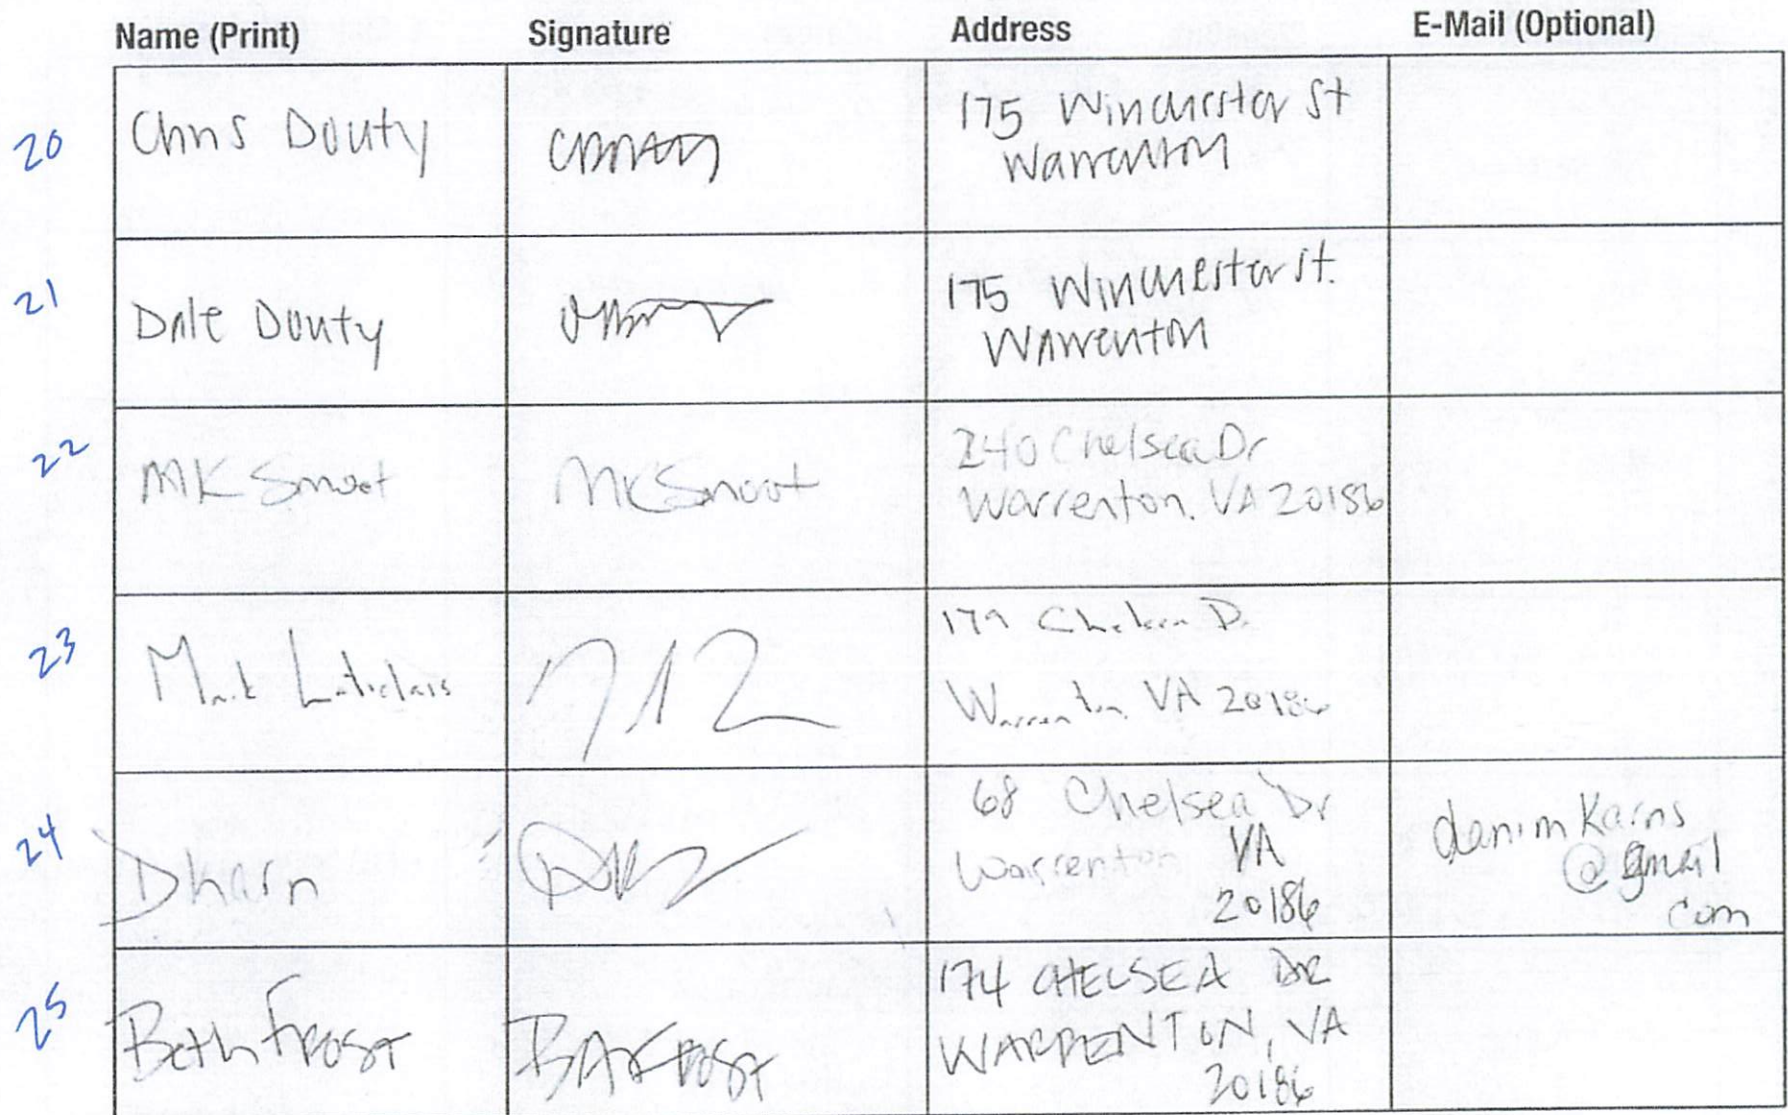 Name (Print) Signature Address E-Mail (Optional)
20 Chris Douty 175 Winchester St
Warrenton
21 Dale Douty 175 Winchester St.
Warrenton
22 MK Smoot MKSmoot 240 Chelsea Dr
Warrenton, VA 20186
23 Mark 179 Chelsea Dr
Warrenton VA 20186
24 Dkarn 68 Chelsea Dr
Warrenton VA
20186
danimkarns
@gmail
com
25 Beth Frost BAFrost 174 CHELSEA DR
WARRENTON, VA
20186